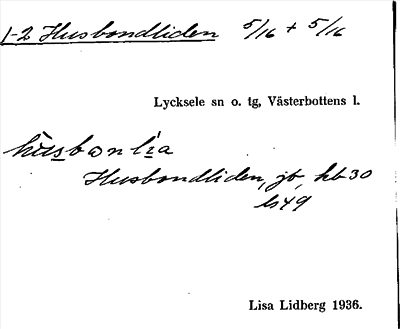 1-2 Husbondliden 5/16 + 5/16
Lycksele sn o. tg, Västerbottens l.
hùsbɷnlìa
Husbondliden, jb, hb 30
ls 49
Lisa Lidberg 1936.